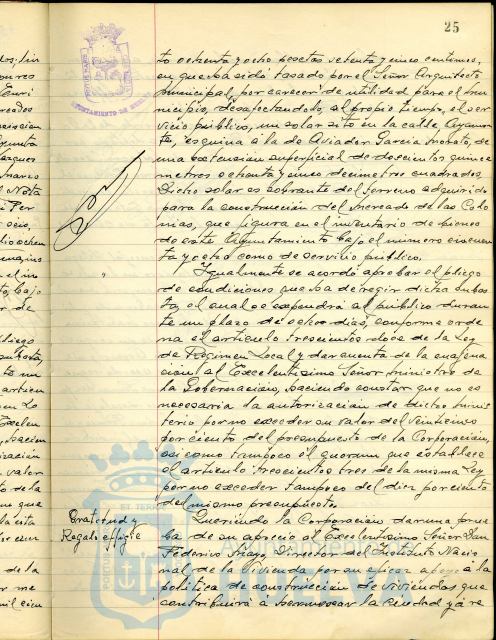 25
to ochenta y ocho pesetas setenta y cinco centimos,
en que ha sido tasado por el Señor Arquitecto
municipal, por carecer de utilidad para el mu
nicipio, desafectandolo, al propio tiempo, el ser
vicio público, un solar sito en la calle Ayamon
te, esquina a la de Aviador Garcia Morato, de
una extension superficial de doscientos quince
metros ochenta y cinco decimetros cuadrados.
Dicho solar es sobrante del terreno adquirido
para la construcción del Mercado de las Colo
nias, que figura en el inventario de bienes
de este Ayuntamiento bajo el numero cincuen
ta y ocho como de servicio público.
Igualmente se acordó aprobar el pliego
de condiciones que ha de regir dicha subas
ta, el cual se expondrá al público duran
te un plazo de ocho dias, conforme orde
na el articulo trescientos doce de la Ley
de Regimen Local y dar cuenta de la enajena
ción al Excelentisimo Señor Ministro de
la Gobernación, haciendo constar que no es
necesaria la autorización de dicho Minis
terio por no exceder su valor del veinticinco
por ciento del presupuesto de la Corporación,
asi como tampoco el quorum que establece
el articulo trescientos tres de la misma Ley
por no exceder tampoco del diez por ciento
del mismo presupuesto.
Gratitud y
Regalo efigie
Queriendo la Corporación dar una prue
ba de su aprecio al Excelentisimo Señor Don
Federico Mayo, Director del Instituto Nacio
nal de la Vivienda por su eficaz apoyo a la
politica de construcción de viviendas que
contribuirá a hermosear la ciudad y a re